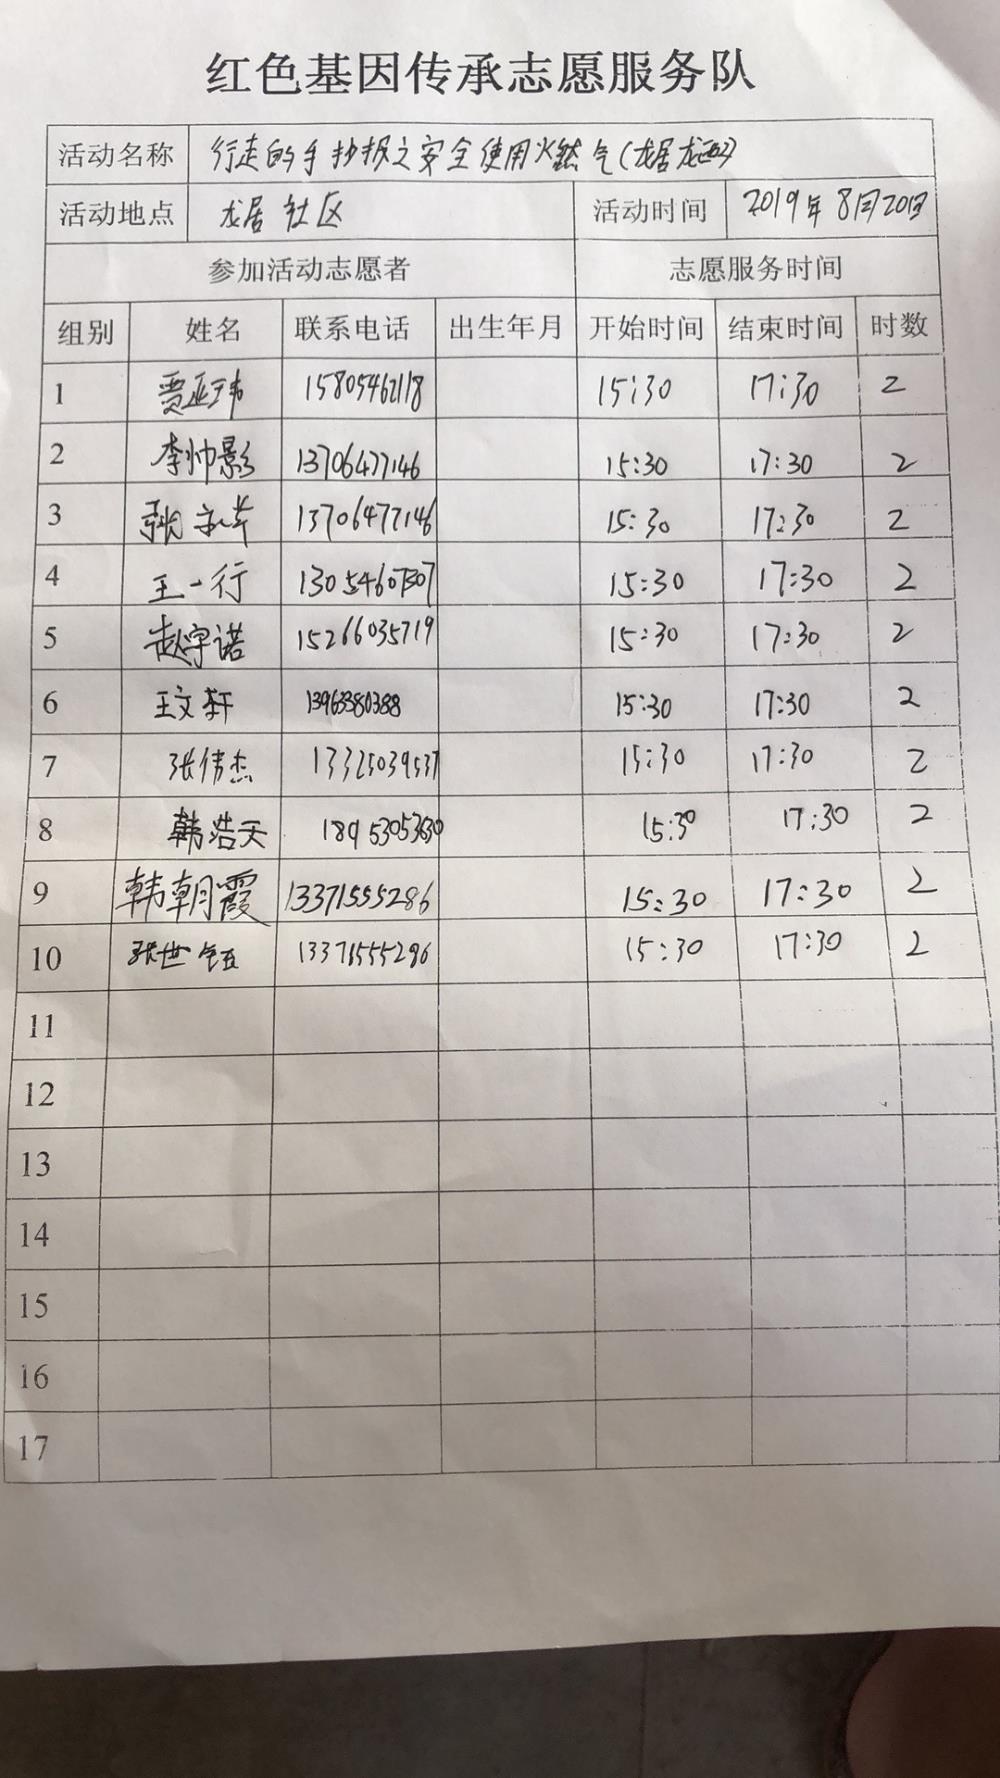 红色基因传承志愿服务队
活动名称 行走的手抄报之安全使用燃气(龙居龙西)
活动地点 龙居社区 活动时间 2019年8月20日
参加活动志愿者 志愿服务时间
组别 姓名 联系电话 出生年月 开始时间 结束时间 时数
1 贾亚玮 15805462118 15:30 17:30 2
2 李帅影 13706477146 15:30 17:30 2
3 13706477146 15:30 17:30 2
4 王一行 13054607307 15:30 17:30 2
5 赵宇诺 15266035719 15:30 17:30 2
6 王文轩 13963380388 15:30 17:30 2
7 张伟杰 13325039537 15:30 17:30 2
8 韩浩天 18953053630 15:30 17:30 2
9 韩朝霞 13371555286 15:30 17:30 2
10 张世钰 13371555286 15:30 17:30 2
11
12
13
14
15
16
17